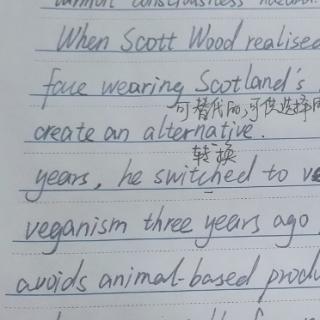 When Scott Wood realised
face wearing Scotland's
可替代的,可供选择
create an alternative.
转换
years, he switched to
veganism three years ago
avoids animal-based produ